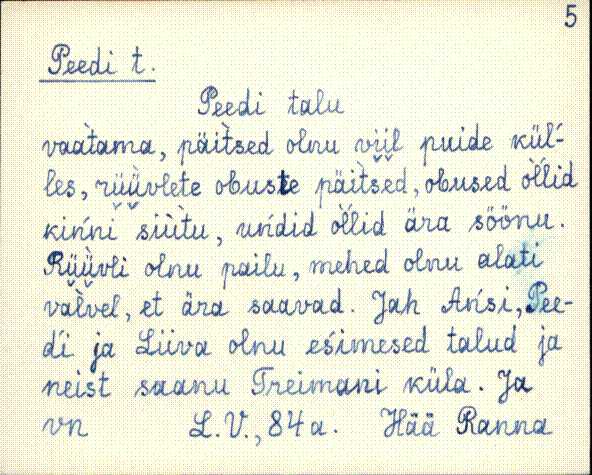 5
Peedi t.
Peedi talu
vaàtama, päìtsed olnu vììl puide kül-
les, rüǜvlete obuste päìtsed, obused òĺlid
kińni siùtu, uńdid òĺlid ära söönu.
Rüǜvli olnu pailu, mehed olnu alati
valvel, et ära saavad. Jah Ańsi, Pee-
di ja Liiva olnu eśimesed talud ja
neist saanu Treimani küla. Ja
vn L.V., 84 a. Hää Ranna